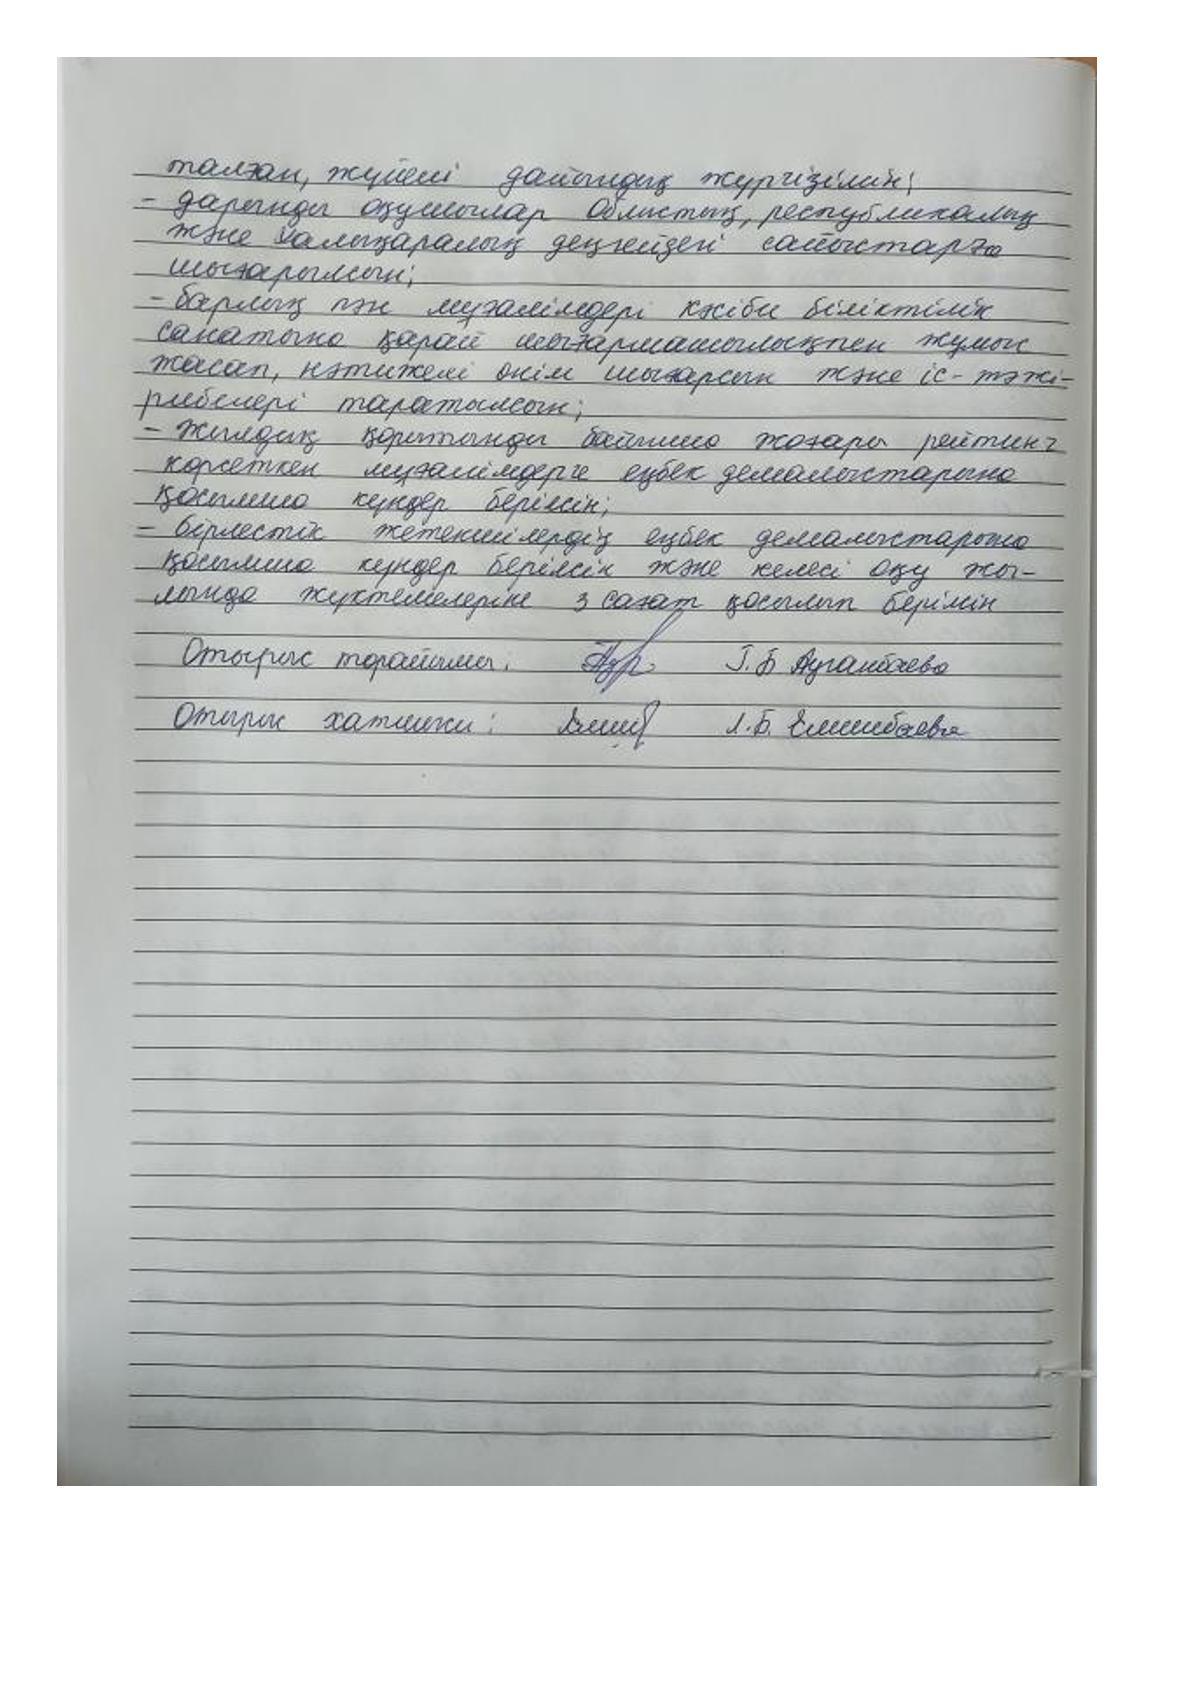 талған, жүйелі дайындық жүргізілсін;
- дарынды оқушылар облыстық, республикалық
және халықаралық деңгейдегі сайыстарға
шығарылсын;
- барлық пән мұғалімдері кәсіби біліктілік
санатына қарай шығармашылықпен жұмыс
жасап, нәтижелі өнім шығарсын және іс-тәжі-
рибелері таратылсын;
- жылдық қорытынды бойынша жоғары рейтинг
көрсеткен мұғалімдерге еңбек демалыстарына
қосымша күндер берілсін;
- бірлестік жетекшілердің еңбек демалыстарына
қосымша күндер берілсін және келесі оқу жы-
лында жүктемелеріне 3 сағат қосылып берілсін
Отырыс төрайымы: Г.Б Ауганбаева
Отырыс хатшысы: Л.Б. Елшибаева